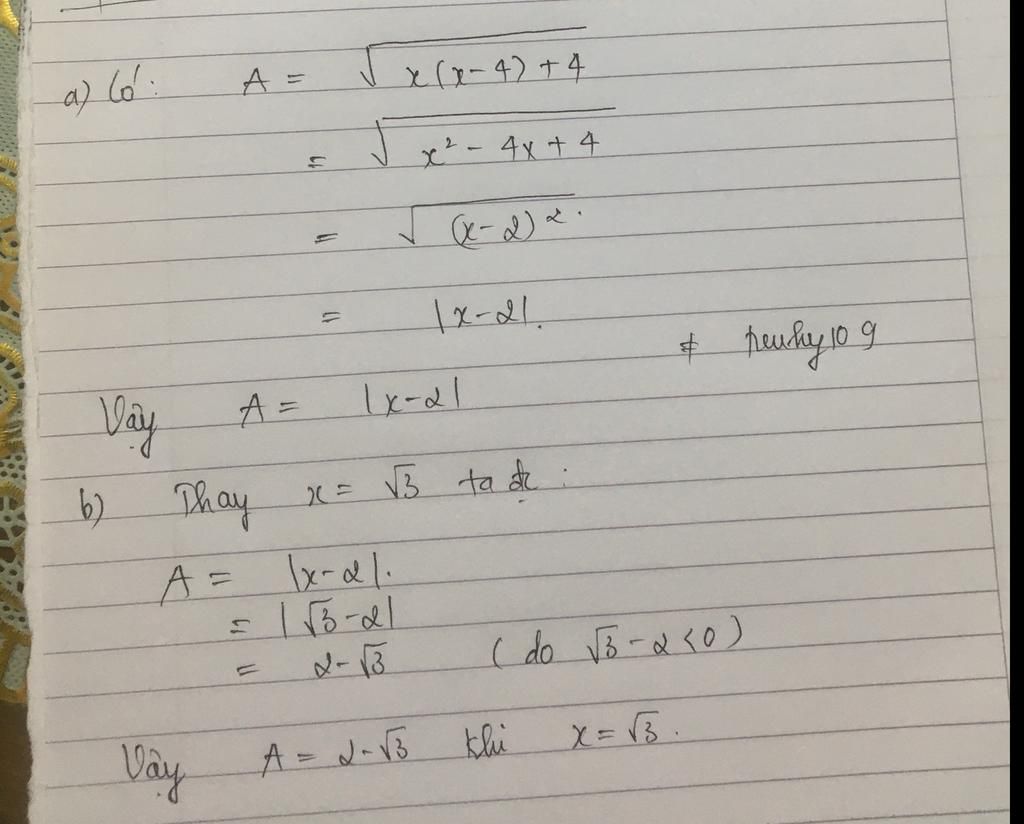 a) Có: A = √(x(x-4)+4)
= √(x² - 4x + 4)
= √((x-2)²).
= |x-2|.
# penhy109
Vậy A = |x-2|
b) Thay x = √3 ta đc :
A = |x-2|.
= |√3-2|
= 2-√3 (do √3-2<0)
Vậy A = 2-√3 khi x = √3.